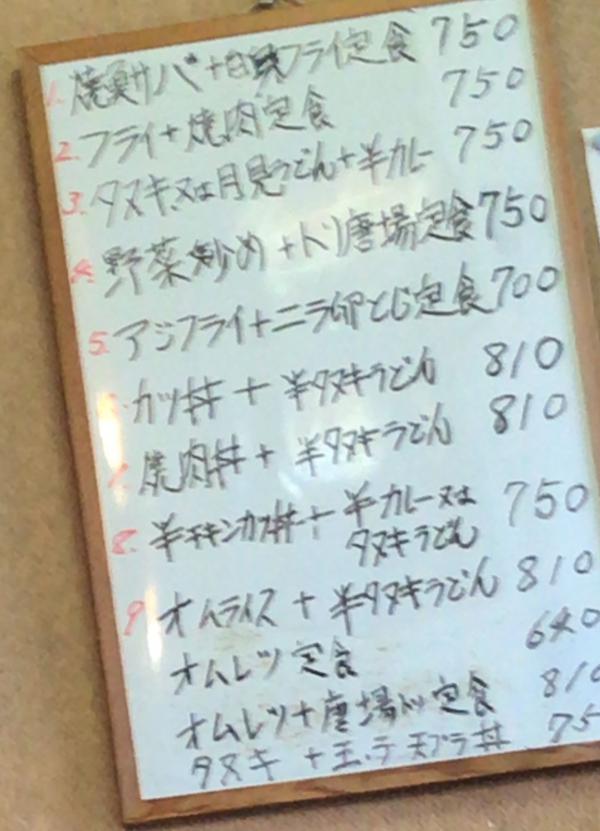 1. 焼魚サバ+白身フライ定食 750
2. フライ+焼肉定食 750
3. タヌキ又は月見うどん+半カレー 750
4. 野菜炒め+トリ唐場定食 750
5. アジフライ+ニラ卵とじ定食 700
カツ丼 + 半タヌキうどん 810
焼肉丼 + 半タヌキうどん 810
8. 半チキンカツ丼+半カレー又は 750
タヌキうどん
9 オムライス + 半タヌキうどん 810
オムレツ定食 640
オムレツ+唐場 定食 810
タヌキ + 玉 天プラ丼 75